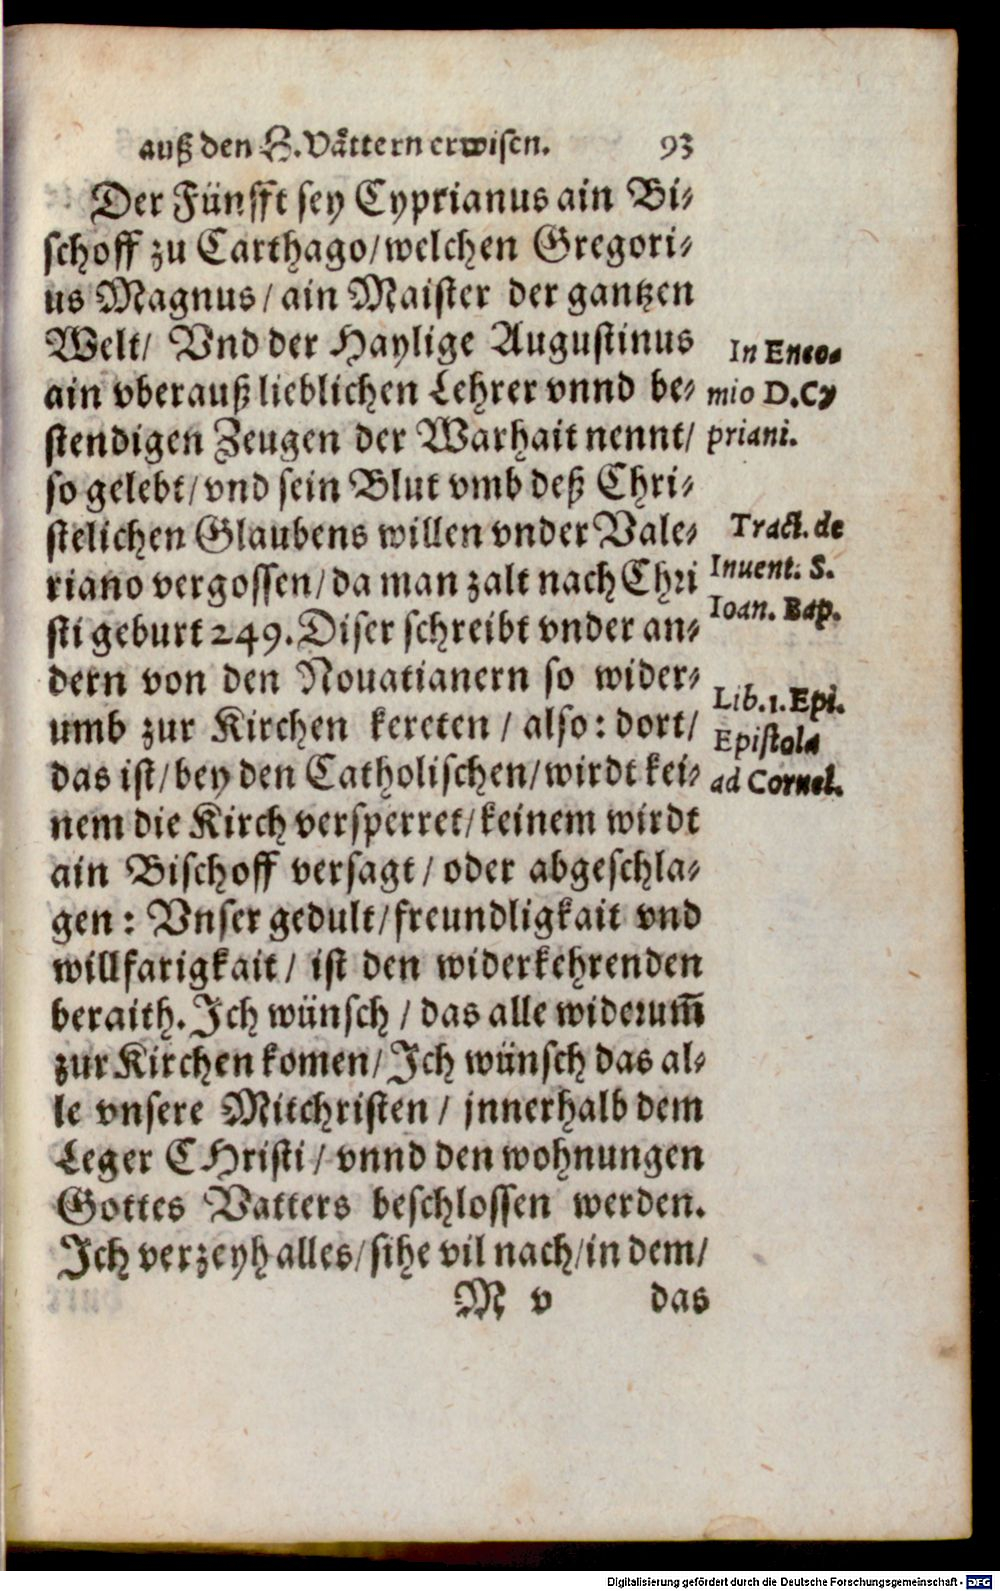 auß den H. Vättern erwisen. 93
Der Fünfft sey Cyprianus ain Bi-
schoff zu Carthago/welchen Gregori-
us Magnus/ ain Maister der gantzen
Welt/ Vnd der Haylige Augustinus
ain vberauß lieblichen Lehrer vnnd be-
stendigen Zeugen der Warhait nennt/
so gelebt/vnd sein Blut vmb deß Chri-
stelichen Glaubens willen vnder Vale-
riano vergossen/da man zalt nach Chri
sti geburt 249. Diser schreibt vnder an-
dern von den Nouatianern so wider-
umb zur Kirchen kereten / also: dort/
das ist/bey den Catholischen/wirdt kei-
nem die Kirch versperret/keinem wirdt
ain Bischoff versagt / oder abgeschla-
gen: Vnser gedult/freundligkait vnd
willfarigkait/ ist den widerkehrenden
beraith. Ich wünsch / das alle widerum̃
zur Kirchen komen/ Ich wünsch das al-
le vnsere Mitchristen / jnnerhalb dem
Leger CHristi / vnnd den wohnungen
Gottes Vatters beschlossen werden.
Ich verzeyh alles/sihe vil nach/in dem/
M v das
In Enco-
mio D. Cy
priani.
Tract. de
Inuent. S.
Ioan. Bap.
Lib. 1. Epi.
Epistola
ad Cornel.
Digitalisierung gefördert durch die Deutsche Forschungsgemeinschaft - DFG